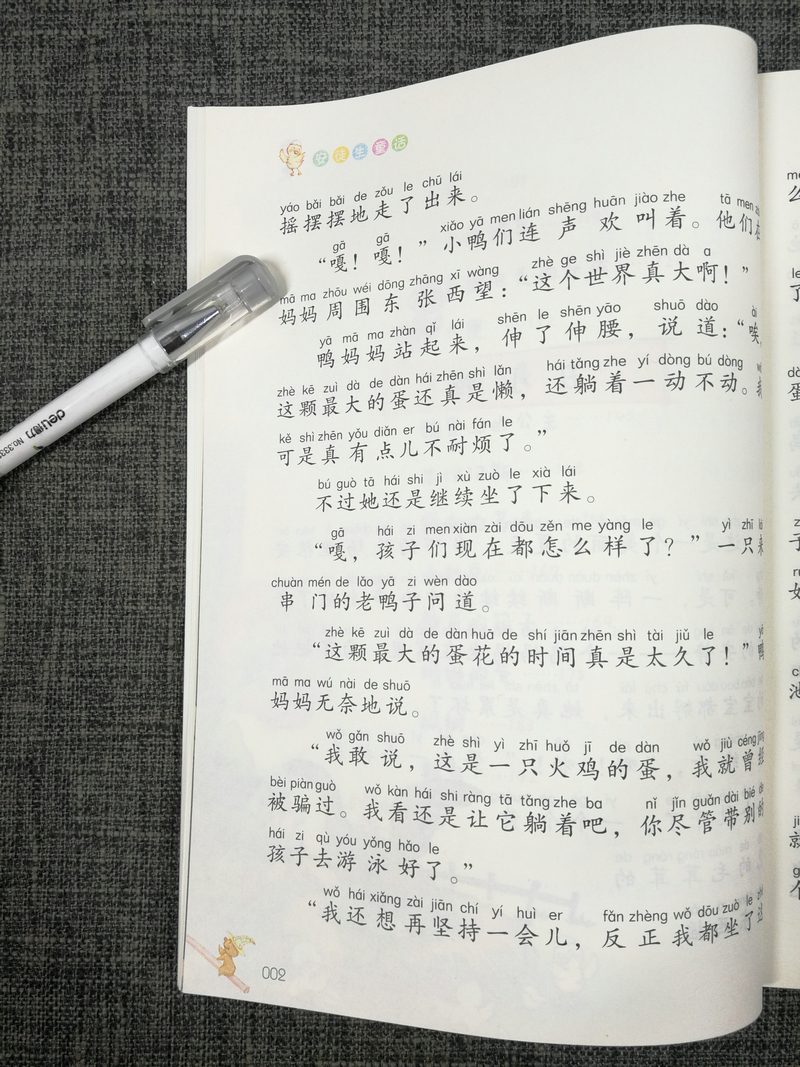 安徒生童话
yáo bǎi bǎi de zǒu le chū lái
摇摆摆地走了出来。
gā gā xiǎo yā men lián shēng huān jiào zhe tā men
“嘎！嘎！”小鸭们连声欢叫着。他们
mā ma zhōu wéi dōng zhāng xī wàng zhè ge shì jiè zhēn dà a
妈妈周围东张西望：“这个世界真大啊！”
yā mā ma zhàn qǐ lái shēn le shēn yāo shuō dào ài
鸭妈妈站起来，伸了伸腰，说道：“唉，
zhè kē zuì dà de dàn hái zhēn shì lǎn hái tǎng zhe yí dòng bú dòng
这颗最大的蛋还真是懒，还躺着一动不动。我
kě shì zhēn yǒu diǎn er bú nài fán le
可是真有点儿不耐烦了。”
bú guò tā hái shi jì xù zuò le xià lái
不过她还是继续坐了下来。
gā hái zi men xiàn zài dōu zěn me yàng le yì zhī
“嘎，孩子们现在都怎么样了？”一只
chuàn mén de lǎo yā zi wèn dào
串门的老鸭子问道。
zhè kē zuì dà de dàn huā de shí jiān zhēn shì tài jiǔ le
“这颗最大的蛋花的时间真是太久了！”鸭
mā ma wú nài de shuō
妈妈无奈地说。
wǒ gǎn shuō zhè shì yì zhī huǒ jī de dàn wǒ jiù céng
“我敢说，这是一只火鸡的蛋，我就曾
bèi piàn guò wǒ kàn hái shi ràng tā tǎng zhe ba nǐ jǐn guǎn dài bié
被骗过。我看还是让它躺着吧，你尽管带别的
hái zi qù yóu yǒng hǎo le
孩子去游泳好了。”
wǒ hái xiǎng zài jiān chí yí huì er fǎn zhèng wǒ dōu zuò le
“我还想再坚持一会儿，反正我都坐了
002
deli得力